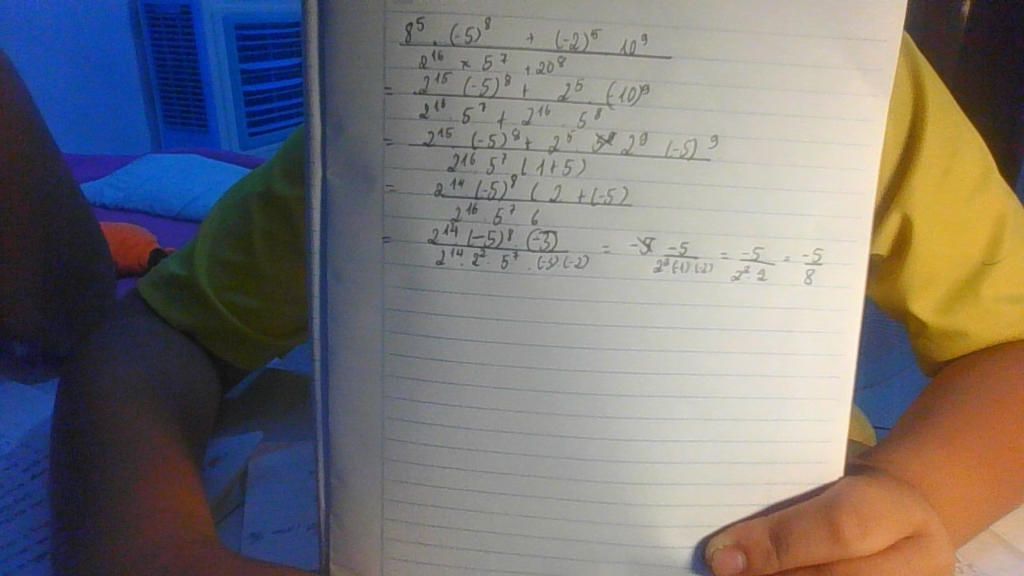 8⁵ . (-5)⁸ + (-2)⁵ 10⁹
2¹⁶ × 5⁷ + 20⁸
= 2¹⁵ (-5)⁸ + 2⁵ . (10)⁹
2¹⁶ . 5⁷ + 2¹⁶ . 5⁸
= 2¹⁵ (-5)⁸ + 2⁵ 2⁹ (-5)⁹
2¹⁶ . 5⁷ ( 1+5)
= 2¹⁴ (-5)⁸ ( 2 + (-5)
2¹⁶ . 5⁷ . 6
= 2¹⁴ (-5)⁸ . (-3) = -5 = -5 = -5
2¹⁴ . 2² . 5⁷ . (-3) (-2) 2² (-1) (-2) 2² . 2 8